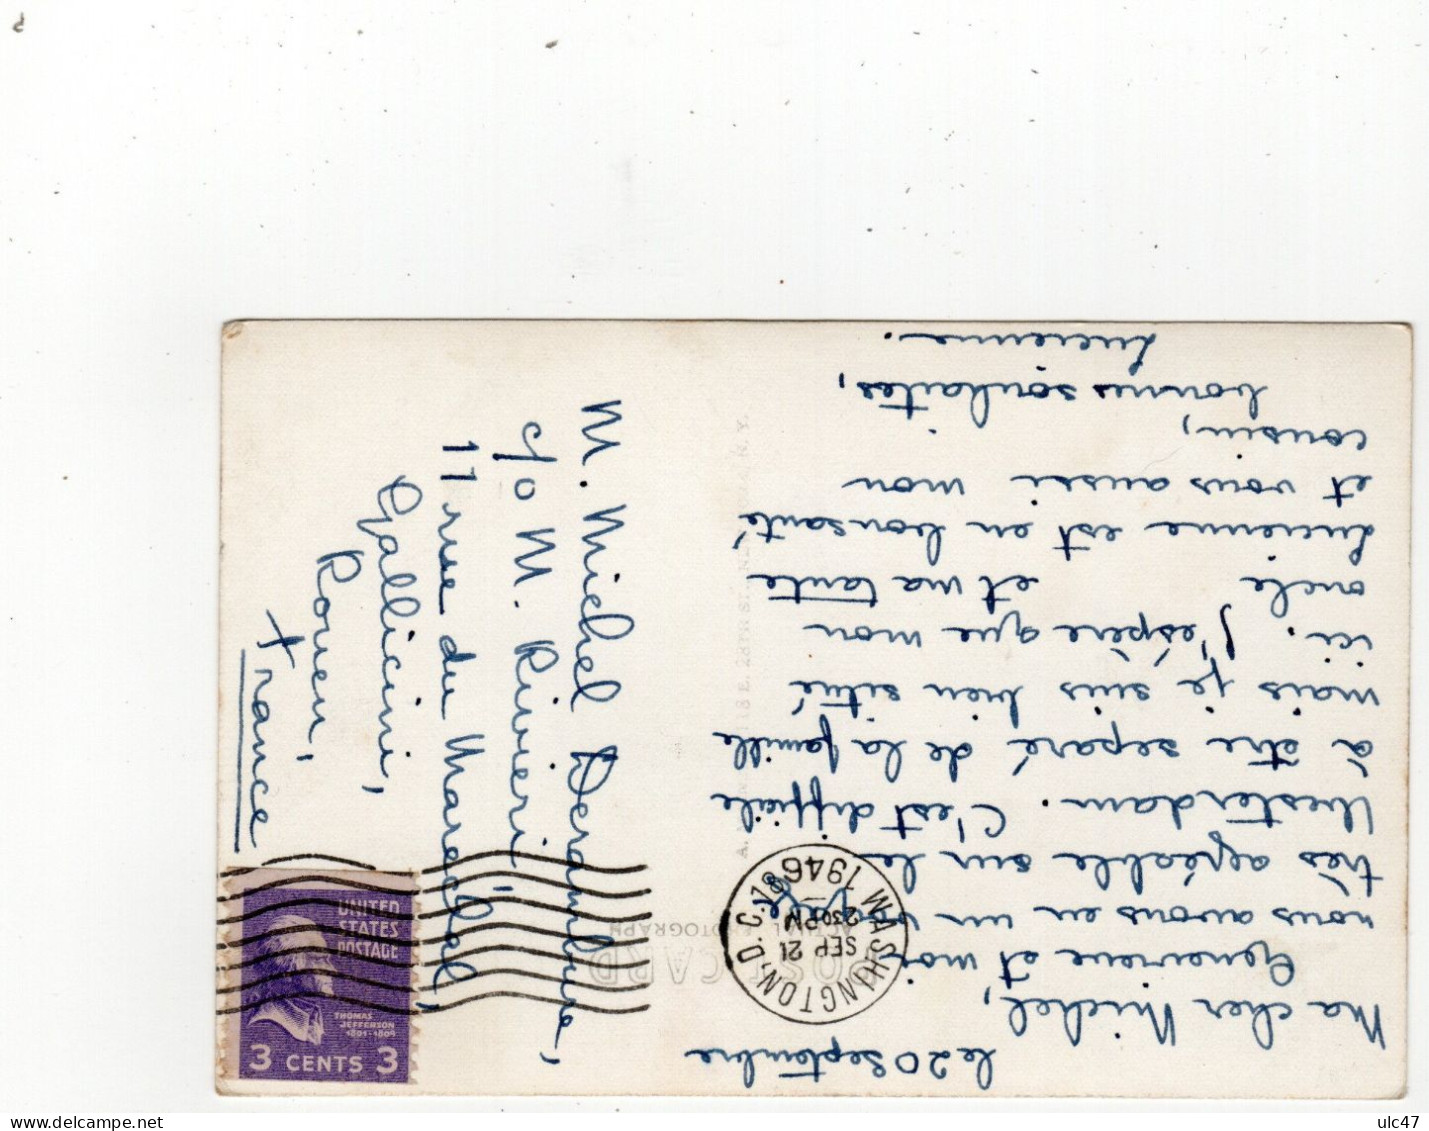 le 20 septembre
Ma cher Michel,
Genevieve et moi
nous avons eu un
très agréable sur le
Westerdam. C'est difficile
à être separé de la famille
mais je suis bien situé
ici. J'espère que mon
oncle et ma tante
Lucienne est en bon santé
et vous aussi mon
cousin,
bonnes souhaites,
Lucienne.
M. Michel Derambure,
c/o M. Rivieri,
11 rue du Marechal
Gallieni,
Rouen,
France
POST CARD
ACTUAL PHOTOGRAPH
WASHINGTON, D.C. 18
SEP 21
2 30 PM
1946
UNITED
STATES
POSTAGE
THOMAS
JEFFERSON
1801-1809
3 CENTS 3
ulc47